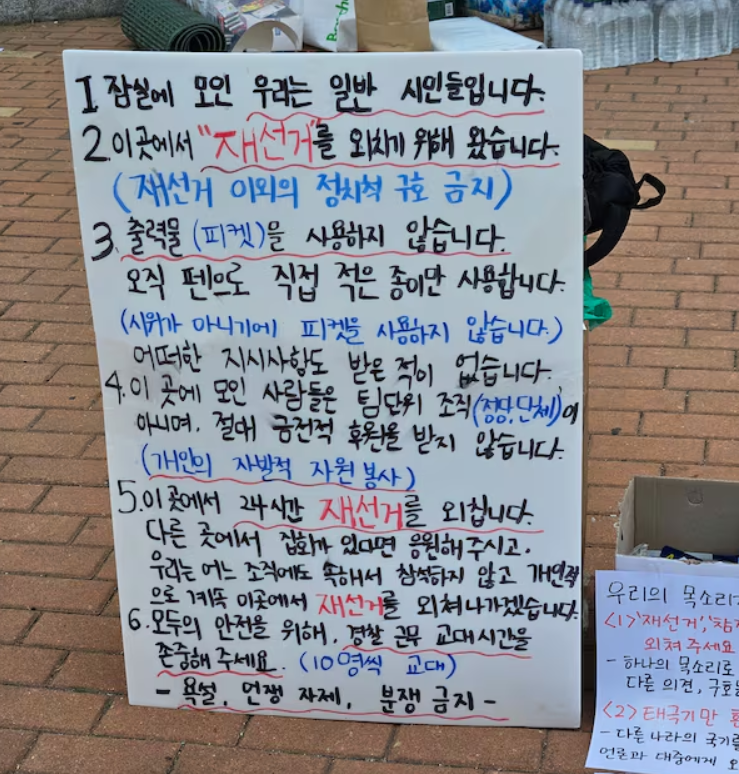 1 잠실에 모인 우리는 일반 시민들입니다.
2. 이곳에서 "재선거"를 외치기 위해 왔습니다.
(재선거 이외의 정치척 구호 금지)
3. 출력물(피켓)을 사용하지 않습니다.
오직 펜으로 직접 적은 종이만 사용합니다.
(시위가 아니기에 피켓을 사용하지 않습니다.)
어떠한 지시사항도 받은 적이 없습니다.
4. 이 곳에 모인 사람들은 팀단위 조직(정당, 단체)이
아니며, 절대 금전적 후원을 받지 않습니다.
(개인의 자발적 자원봉사)
5. 이곳에서 24시간 재선거를 외칩니다.
다른 곳에서 집회가 있다면 응원해주시고,
우리는 어느 조직에도 속해서 참석하지 않고 개인적
으로 계속 이곳에서 재선거를 외쳐나가겠습니다.
6. 모두의 안전을 위해, 경찰 근무 교대시간을
존중해주세요. (10명씩 교대)
- 욕설, 언쟁 자제, 분쟁 금지 -
우리의 목소리
<1> '재선거',
외쳐주세요
- 하나의 목소리로
다른 의견, 구호
<2> 태극기만
- 다른 나라의 국기를
언론과 대중에게